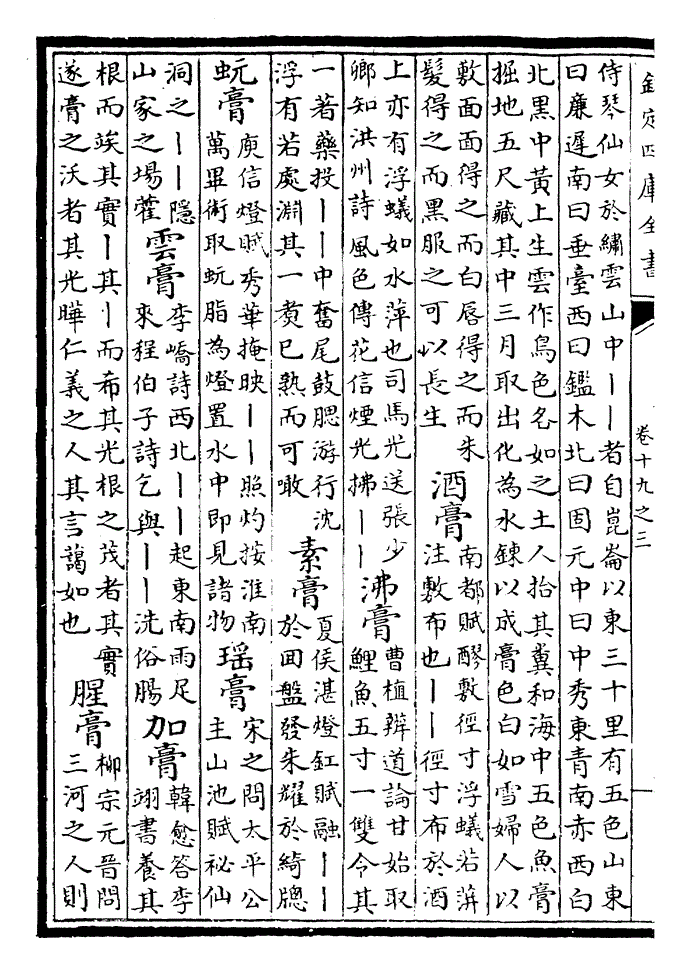 欽定四庫全書
卷十九之三
侍琴仙女於繡雲山中丨丨者自崑崙以東三十里有五色山東
曰廉遲南曰垂臺西曰鑑木北曰固元中曰中秀東青南赤西白
北黑中黃上生雲作鳥色名如之土人拾其糞和海中五色魚膏
掘地五尺藏其中三月取出化為水鍊以成膏色白如雪婦人以
敷面面得之而白唇得之而朱
髮得之而黑服之可以長生
酒膏
南都賦醪敷徑寸浮蟻若蓱
注敷布也丨丨徑寸布於酒
上亦有浮蟻如水萍也司馬光送張少
卿知洪州詩風色傳花信煙光拂丨丨
沸膏
曹植辨道論甘始取
鯉魚五寸一雙令其
一著藥投丨丨中奮尾鼓腮游行沈
浮有若處淵其一煑已熟而可噉
素膏
夏侯湛燈缸賦融丨丨
於囬盤發朱耀於綺牕
蚖膏
庾信燈賦秀華掩映丨丨照灼按淮南
萬畢術取蚖脂為燈置水中即見諸物
瑶膏
宋之問太平公
主山池賦祕仙
洞之丨丨隱
山家之場藿
雲膏
李嶠詩西北丨丨起東南雨足
來程伯子詩乞與丨丨洗俗腸
加膏
韓愈答李
翊書養其
根而竢其實丨其丨而希其光根之茂者其實
遂膏之沃者其光曄仁義之人其言藹如也
腥膏
柳宗元晉問
三河之人則